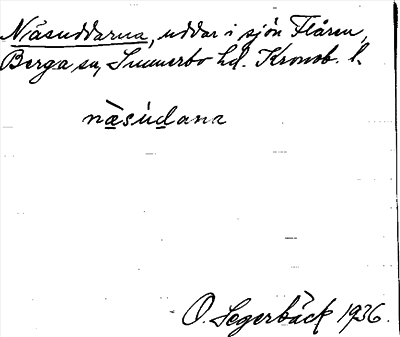 Näsuddarna, uddar i sjön Flåren,
Berga sn, Sunnerbo hd. Kronob. l.
næ̀súdana
O. Segerbäck 1936.